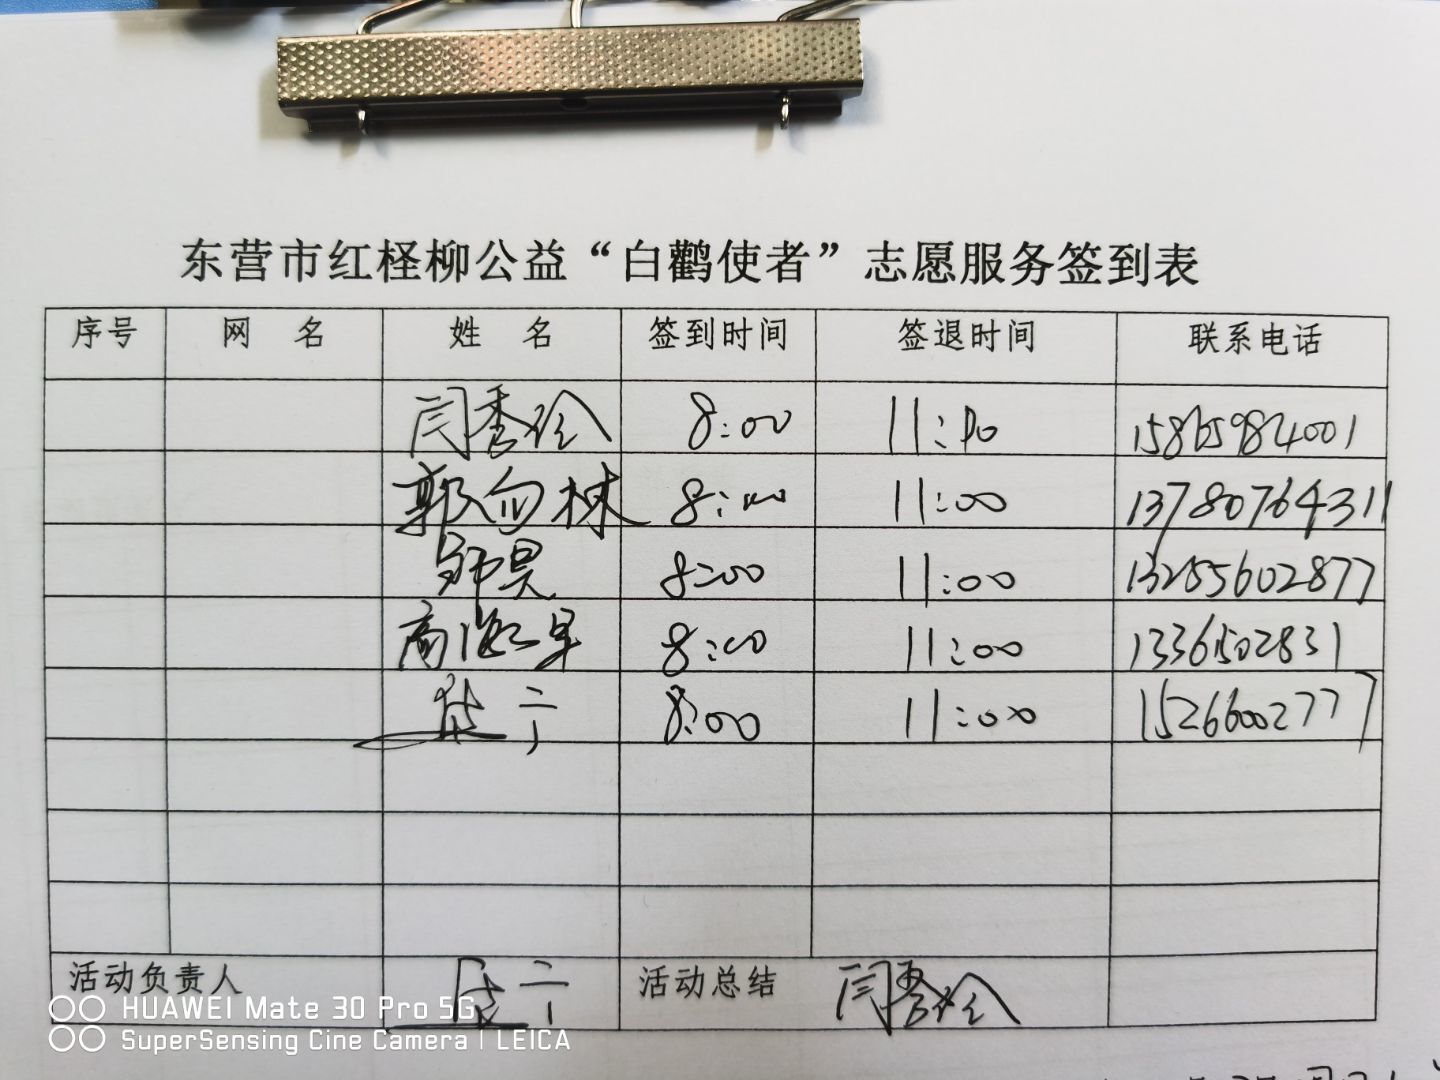 东营市红柽柳公益“白鹳使者”志愿服务签到表
序号 网 名 姓 名 签到时间 签退时间 联系电话
闫秀玲 8:00 11:00 15865984001
郭 林 8:00 11:00 13780764311
昊 8:00 11:00 13255602877
高 8:00 11:00 1336502831
8:00 11:00 15266002777
活动负责人 活动总结 闫秀玲
HUAWEI Mate 30 Pro 5G
SuperSensing Cine Camera | LEICA